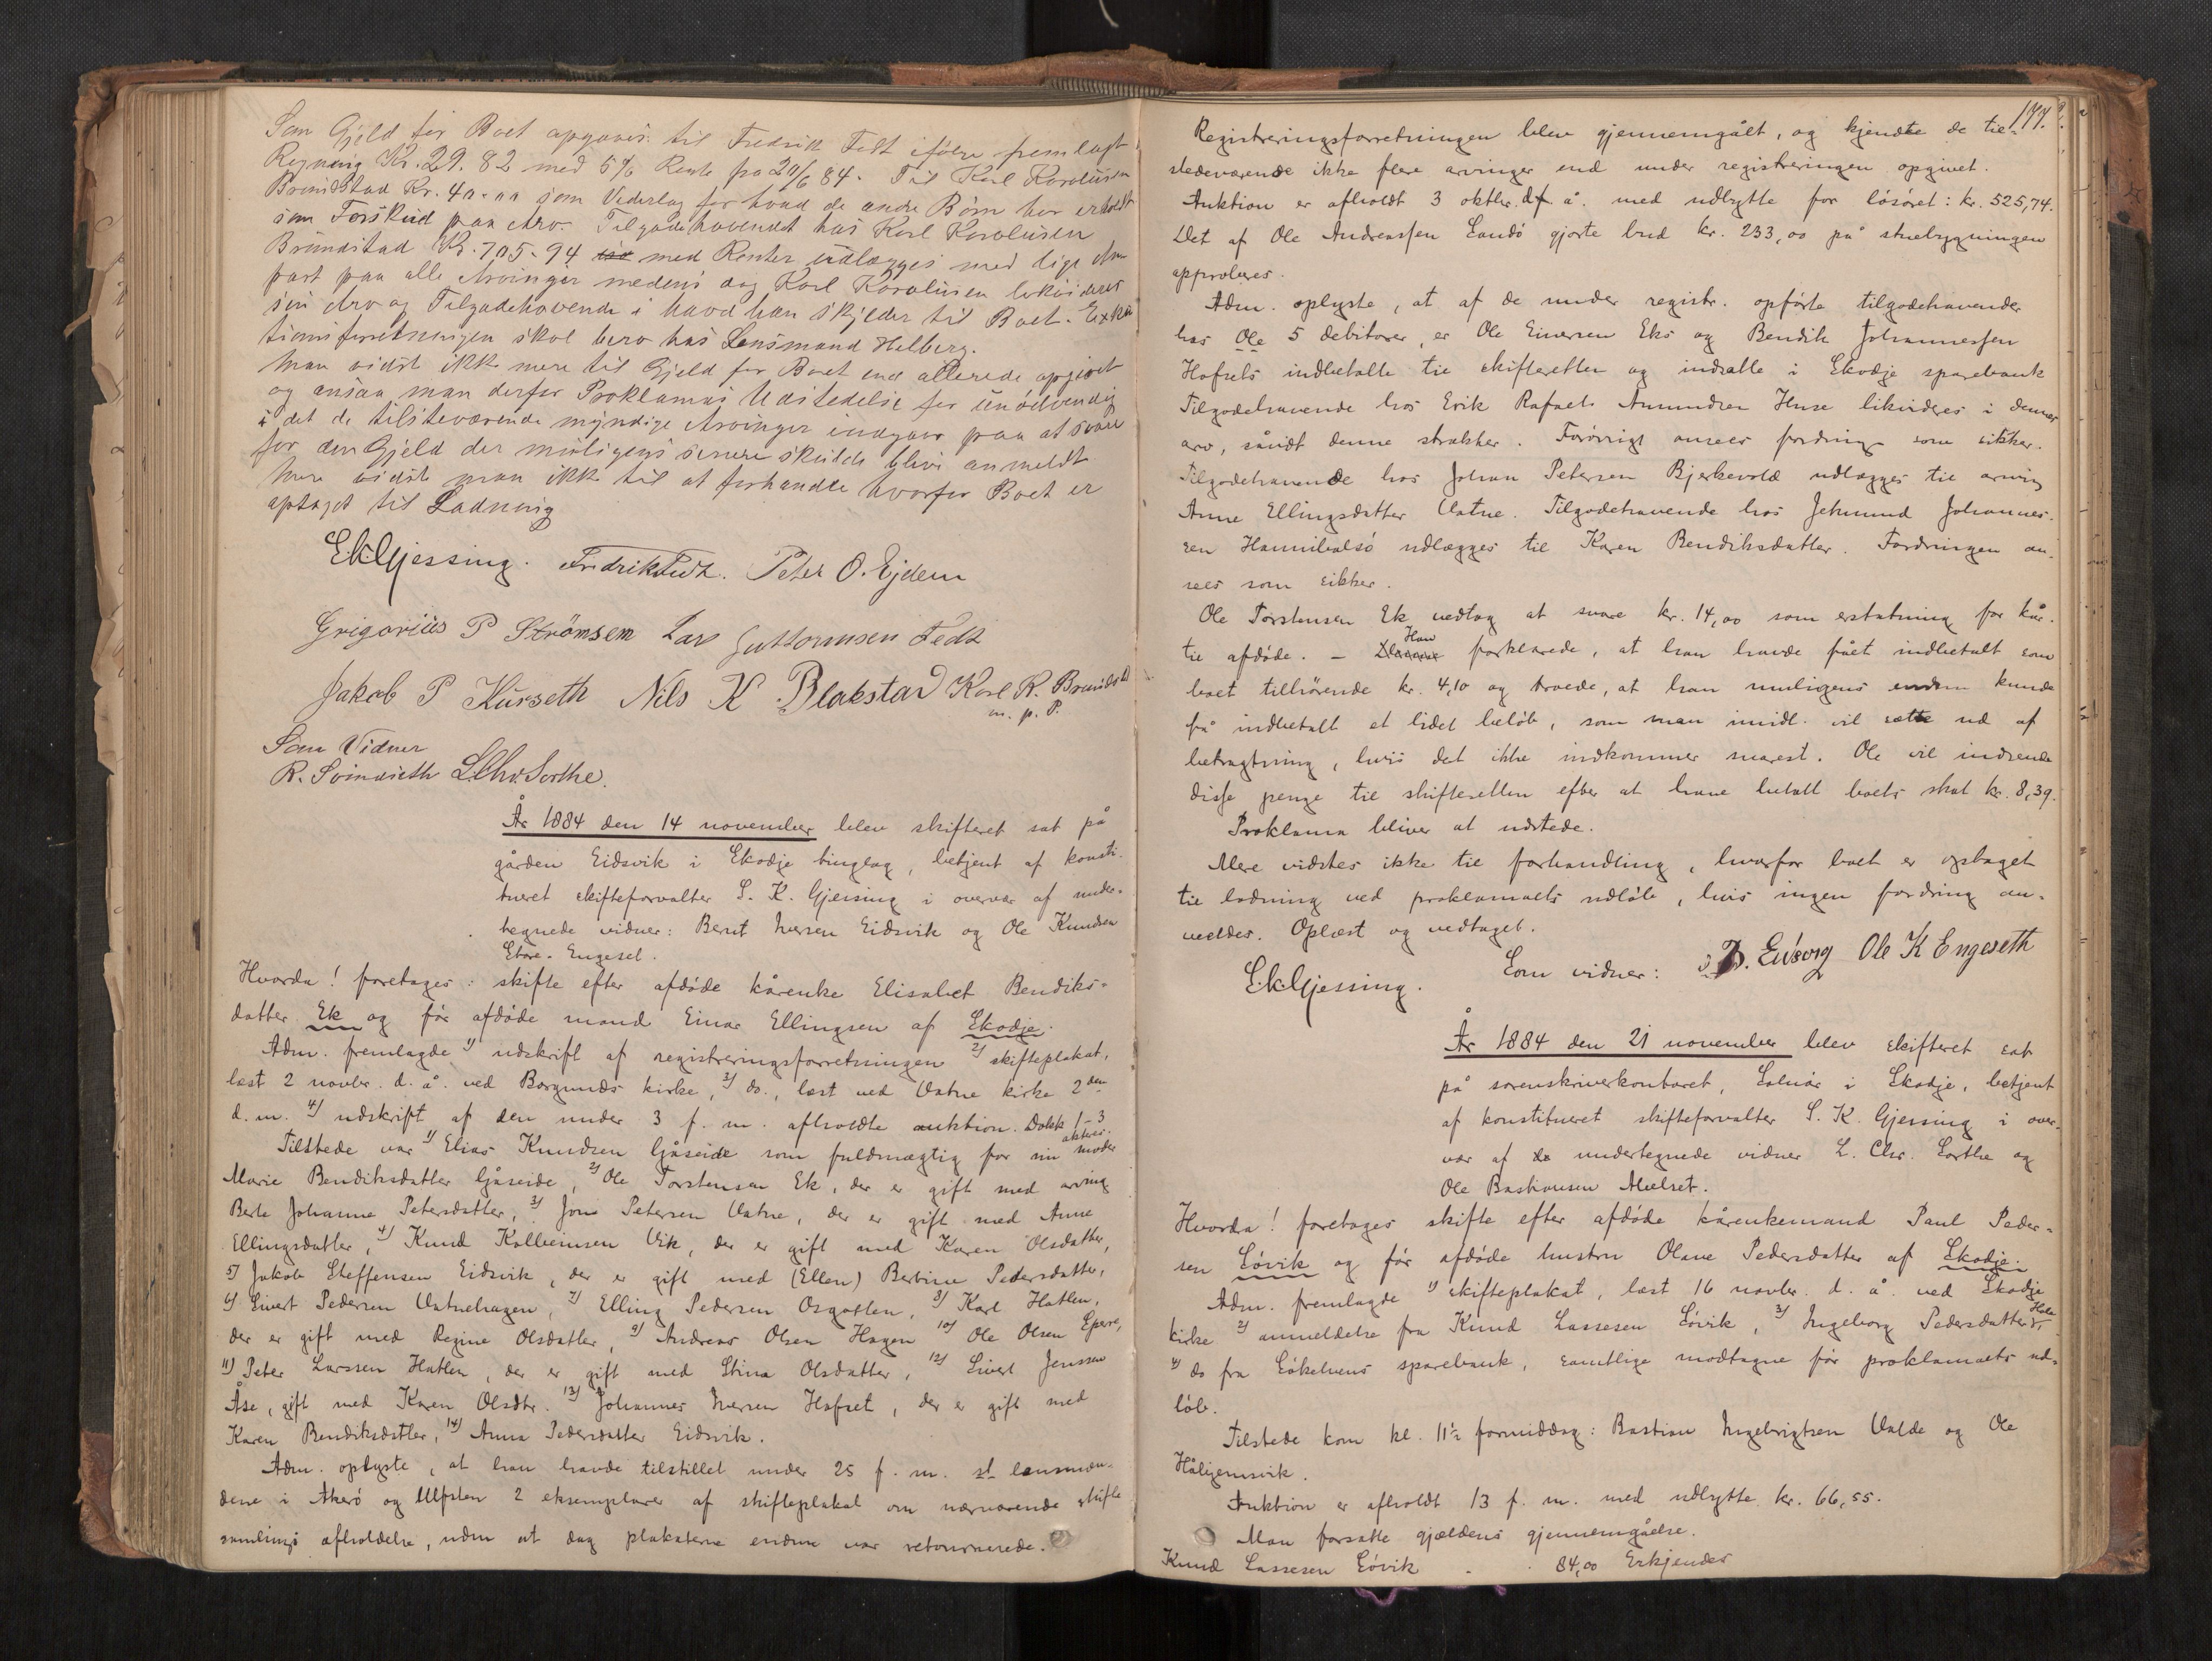 Som Gjeld for Boet opgaves: til Fredrik Tidt ifølge fremlagt
Regning Kr. 29.82 med 5% Rente fra 20/6 84. Til Karl Karolusen
Brundstad Kr. 40.00 som Vederlag for hvad de andre Børn har erholdt
som Forskud paa Arv. Tilgodehavendet hos Karl Karolusen
Brundstad Kr. 705.94 med Renter udlægges med lige
part paa alle Arvinger medens dog Karl Karolusen likviderer
sin Arv og Tilgodehavende i hvad han skylder til Boet.
tionsforretningen skal bero hos Lensmand Helberg.
Man vidste ikke mere til Gjeld for Boet end allerede opgivet
og ansaa man derfor Proklamas Udstedelse for unødvendig
i det de tilstedeværende myndige Arvinger indgaar paa at svare
for den Gjeld der muligens senere skulde blive anmeldt
Mere vidste man ikke til at forhandle hvorfor Boet er
optaget til Ladning
E.K.Gjessing. Fredrik Tidt. Peter O. Ejdem
Grigorius P Strømsem Lars Guttormsen Tedt
Jakob P Kurseth Nils K Blakstad Karl K. Brundstd
m. p. P.
Som Vidner
R. Svindseth L.Chr. Sorthe.
År 1884 den 14 november blev skifteret sat på
gården Eidsvik i Skodje tinglag, betjent af konsti-
tueret skifteforvalter S. K. Gjessing i overvær af under-
tegnede vidner: Bernt Iversen Eidsvik og Ole Knudsen
Store-Engeset.
Hvorda! foretages: skifte efter afdøde kårenke Elisabet Bendiks-
datter Ek og før afdøde mand Einar Ellingsen af Skodje.
Adm. fremlagde 1) udskrift af registreringsforretningen 2) skifteplakat,
læst 2 novbr. d. å. ved Borgunds kirke, 3) do., læst ved Vatne kirke 2den
d. m. 4) udskrift af den under 3 f. m. afholdte auktion. Dokk 1-3
akteres.
Tilstede var 1) Elias Knudsen Gjåseide som fuldmægtig for sin moder
Marie Bendiksdatter Gjåseide, 2) Ole Torstensen Ek, der er gift med arving
Berte Johanne Petersdatter, 3) Jøns Petersen Vatne, der er gift med Anne
Ellingsdatter, 4) Knud Kolbeinsen Vik, der er gift med Karen Olsdatter,
5) Jakob Steffensen Eidsvik, der er gift med (Ellen) Bertine Pedersdatter,
6) Sivert Pedersen Vatnehagen, 7) Elling Pedersen Osgotten, 8) Karl Hatlen,
der er gift med Regine Olsdatter, 9) Andreas Olsen Hagen 10) Ole Olsen
11) Peter Larssen Hatlen, der er gift med Stina Olsdatter, 12) Sivert Jenssen
Åse, gift med Karen Olsdtr. 13) Johannes Iversen Hofset, der er gift med
Karen Bendiksdatter, 14) Anna Pedersdatter Eidsvik.
Adm. oplyste, at han havde tilstillet under 25 f. m. lensmæn-
dene i Akerø og Ulfsten 2 eksemplarer af skifteplakat om nærværende skifte
samlings afholdelse, uden at dog plakaterne endnu var retournerede.
177.
Registreringsforretningen blev gjennemgået, og kjendte de til-
stedeværende ikke flere arvinger end under registreringen opgivet.
Auktion er afholdt 3 oktbr. d. å. med udbytte for løsøret: kr. 525,74.
Det af Ole Andreassen Landø gjorte bud kr. 233,00 på stuebygningen
approberes.
Adm. oplyste, at af de under registr. opførte tilgodehavender
hos Ole 5 debitorer, er Ole Einersen Eks og Bendik Johannessen
Hofsets indbetalte til skifteretten og indsatte i Skodje sparebank
Tilgodehavende hos Erik Rafael Amundsen Huse likvideres i dennes
arv, såvidt denne strækker. Forøvrigt ansees fordring som sikker.
Tilgodehavende hos Johan Petersen Bjerkevold udlægges til arving
Anne Ellingsdatter Vatne. Tilgodehavende hos Jetmund Johannes-
sen Hannibalsø udlægges til Karen Bendiksdatter. Fordringen an-
sees som sikker.
Ole Torstensen Ek vedtog at svare kr. 14,00 som erstatning for kår
til afdøde. – Han forklarede, at han havde fået indbetalt som
boet tilhørende kr. 4,10 og troede, at han muligens endnu kunde
få indbetalt et lidet beløb, som man imidl. vil sætte ud af
betragtning, hvis det ikke indkommer snarest. Ole vil indsende
disse penge til skifteretten efter at have betalt boets skat kr. 8,39.
Proklama bliver at udstede.
Mere vidstes ikke til forhandling, hvorfor boet er optaget
til ladning ved proklamaets udløb, hvis ingen fordring an-
meldes. Oplæst og vedtaget.
E.K.Gjessing. Som vidner: B. Eidsvig Ole K Engeseth
År 1884 den 21 november blev skifteret sat
på sorenskriverkontoret, Solnør i Skodje, betjent
af konstitueret skifteforvalter S. K. Gjessing i over-
vær af de undertegnede vidner L. Chr. Sorthe og
Ole Bastiansen Mielset.
Hvorda! foretages skifte efter afdøde kårenkemand Paul Peder-
sen Løvik og før afdøde hustru Olave Pedersdatter af Skodje.
Adm. fremlagde 1) skifteplakat, læst 16 novbr. d. å. ved Skodje
kirke 2) anmeldelse fra Knud Lassesen Løvik, 3) Ingeborg Pedersdatter
4) do fra Søkelvens sparebank, samtlige modtagne før proklamaets ud-
løb.
Tilstede kom kl. 11½ formiddag: Bastian Ingebrigtsen Valde og Ole
Håhjemsvik.
Auktion er afholdt 13 f. m. med udbytte kr. 66,55.
Man forsatte gjældens gjennemgåelse.
Knud Lassesen Løvik - 84,00 Erkjendes